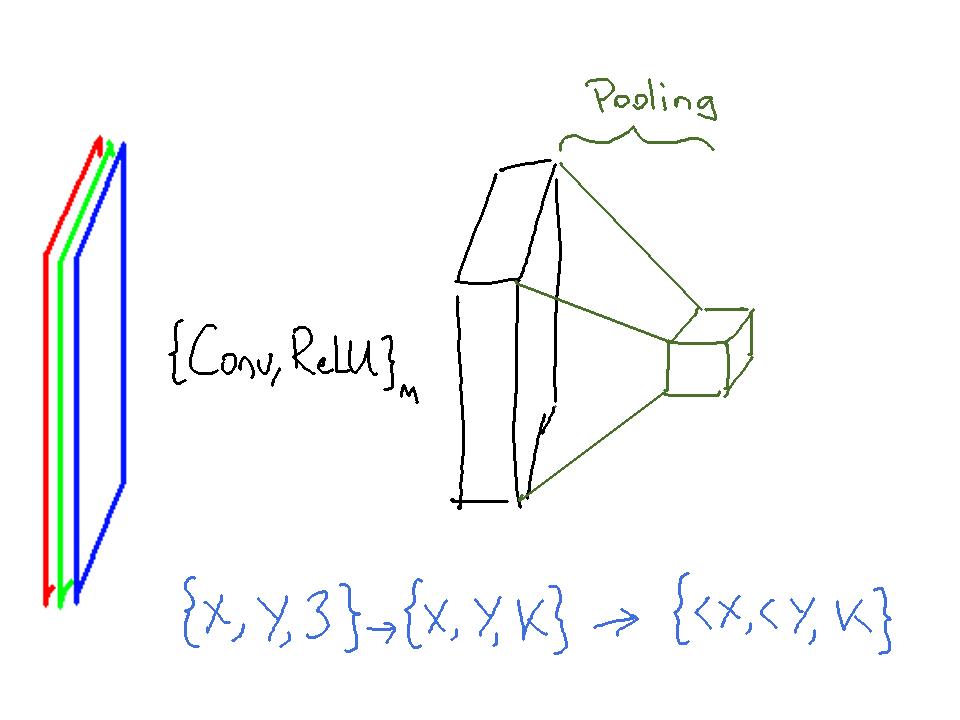 Pooling
{Conv, ReLU}M
{X, Y, 3} → {X, Y, K} → {<X, <Y, K}